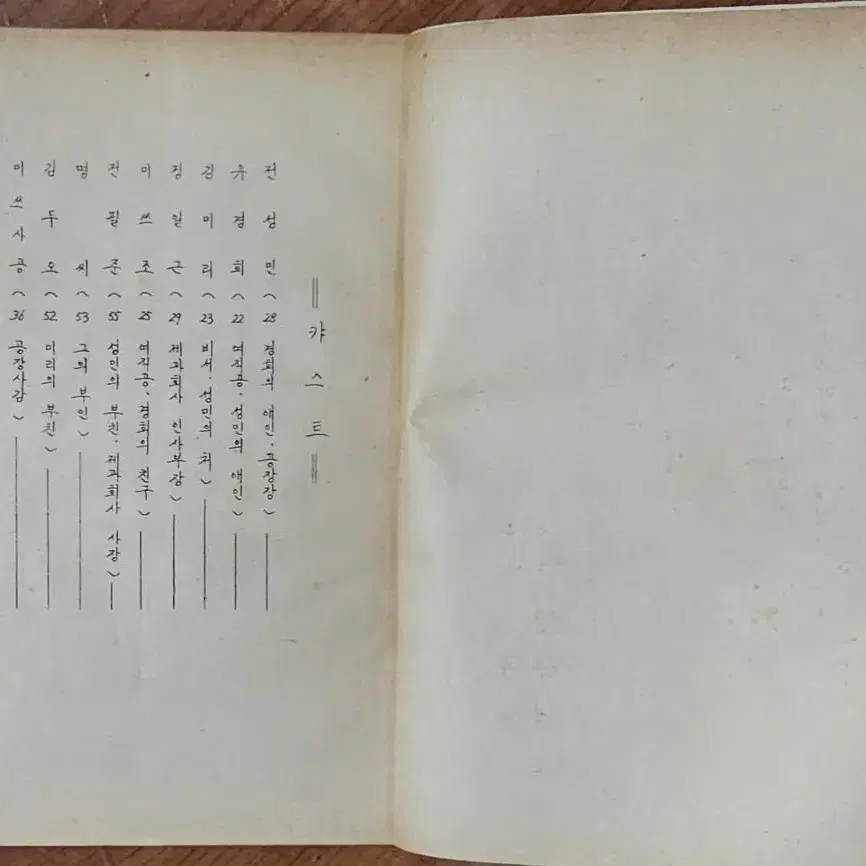 캬스트
전성민 (28 경희의 애인·공장장)
유경희 (22 여직공·성민의 애인)
김미리 (23 비서·성민의 )
정일근 (29 제과회사 인사부장)
미쓰조 (25 여직공·경희의 친구)
전필준 (55 성민의 부친·제과회사 사장)
명씨 (53 그의 부인)
김두오 (52 미리의 부친)
미쓰사공 (36 공장사감)